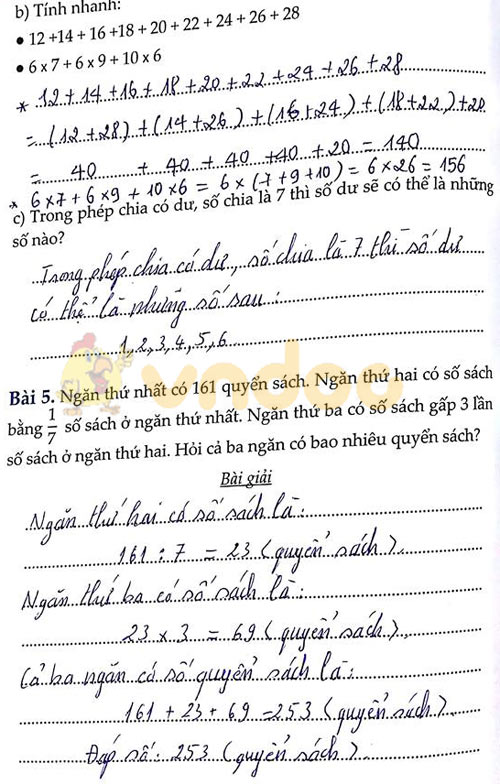 b) Tính nhanh:
• 12 +14 + 16 +18 + 20 + 22 + 24 + 26 + 28
• 6 x 7 + 6 x 9 + 10 x 6
* 12 + 14 + 16 + 18 + 20 + 22 + 24 + 26 + 28
= (12 + 28) + (14 + 26) + (16 + 24) + (18 + 22) + 20
= 40 + 40 + 40 + 40 + 20 = 140
* 6 x 7 + 6 x 9 + 10 x 6 = 6 x (7 + 9 + 10) = 6 x 26 = 156
c) Trong phép chia có dư, số chia là 7 thì số dư sẽ có thể là những
số nào?
Trong phép chia có dư, số chia là 7 thì số dư
có thể là những số sau :
1, 2, 3, 4, 5, 6
vndoc
Bài 5. Ngăn thứ nhất có 161 quyển sách. Ngăn thứ hai có số sách
bằng 1/7 số sách ở ngăn thứ nhất. Ngăn thứ ba có số sách gấp 3 lần
số sách ở ngăn thứ hai. Hỏi cả ba ngăn có bao nhiêu quyển sách?
Bài giải
Ngăn thứ hai có số sách là :
161 : 7 = 23 (quyển sách)
Ngăn thứ ba có số sách là :
23 x 3 = 69 (quyển sách)
Cả ba ngăn có số quyển sách là :
161 + 23 + 69 = 253 (quyển sách)
Đáp số : 253 (quyển sách)